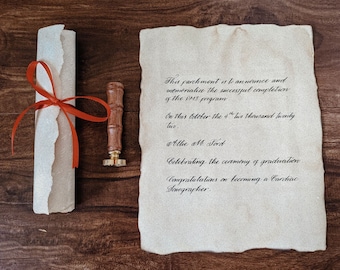 This parchment is to announce and
memorialize the successful completion
of the program
On this October the 4th two thousand twenty
two
At the
Celebrating the ceremony of graduation
Congratulations on becoming a Cardiac
Sonographer